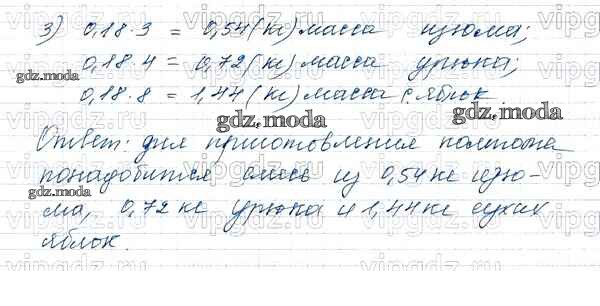 3) 0,18 · 3 = 0,54 (кг) масса изюма;
0,18 · 4 = 0,72 (кг) масса урюка;
0,18 · 8 = 1,44 (кг) масса с. яблок
Ответ: для приготовления компота
понадобится смесь из 0,54 кг изю-
ма, 0,72 кг урюка и 1,44 кг сухих
яблок.
gdz.moda
gdz.moda
gdz.moda
gdz.moda